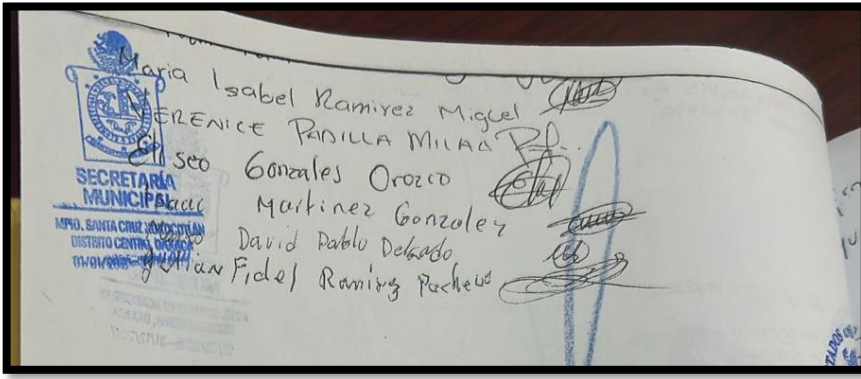 Maria Isabel Ramirez Miguel
VERENICE PADILLA
Eliseo Gonzales Orozco
Isaac Martinez Gonzalez
David Pablo Delgado
Julian Fidel Ramirez Pacheco
SECRETARÍA
MUNICIPAL
MPIO. SANTA CRUZ
DISTRITO CENTRO, OAXACA